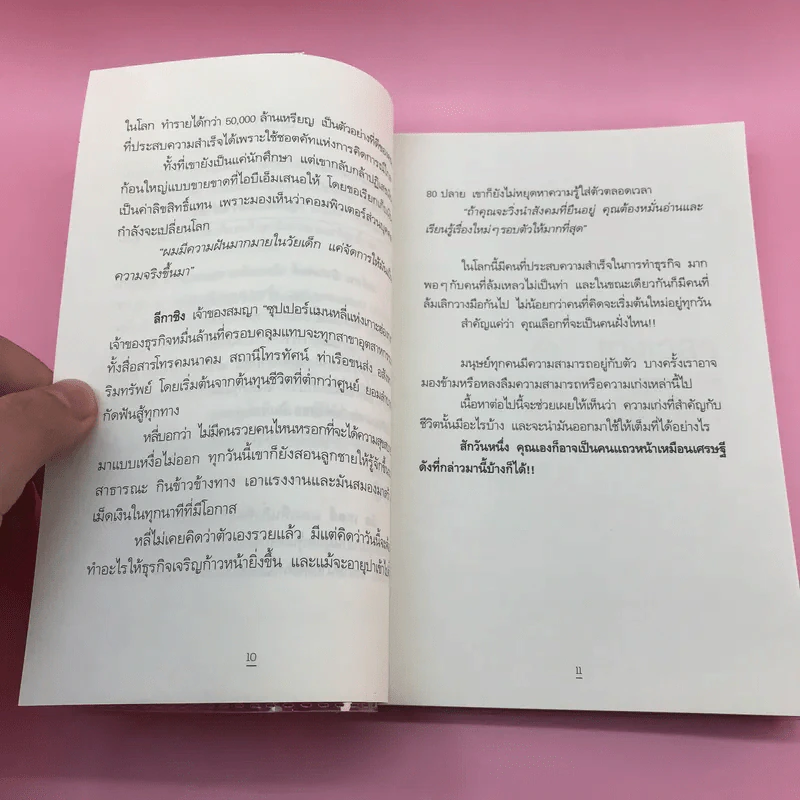 ในโลก ทำรายได้กว่า 50,000 ล้านเหรียญ เป็นตัวอย่างที่ดีของคน
ที่ประสบความสำเร็จได้เพราะใช้ชอตคัทแห่งการคิดการณ์
ทั้งที่เขายังเป็นแค่นักศึกษา แต่เขากลับกล้าปฏิเสธ
ก้อนใหญ่แบบขายขาดที่ไอบีเอ็มเสนอให้ โดยขอเรียกเก็บ
เป็นค่าลิขสิทธิ์แทน เพราะมองเห็นว่าคอมพิวเตอร์ส่วนบุคคล
กำลังจะเปลี่ยนโลก
"ผมมีความฝันมากมายในวัยเด็ก แค่จัดการให้มัน
ความจริงขึ้นมา"
ลีกาชิง เจ้าของสมญา "ซุปเปอร์แมนหลี่แห่งเกาะฮ่องกง
เจ้าของธุรกิจหมื่นล้านที่ครอบคลุมแทบจะทุกสาขาอุตสาหกรรม
ทั้งสื่อสารโทรคมนาคม สถานีโทรทัศน์ ท่าเรือขนส่ง อสังหา
ริมทรัพย์ โดยเริ่มต้นจากต้นทุนชีวิตที่ต่ำกว่าศูนย์ ยอมลำบาก
กัดฟันสู้ทุกทาง
หลี่บอกว่า ไม่มีคนรวยคนไหนหรอกที่จะได้ความสุขสบาย
มาแบบเหงื่อไม่ออก ทุกวันนี้เขาก็ยังสอนลูกชายให้รู้จักขึ้นรถ
สาธารณะ กินข้าวข้างทาง เอาแรงงานและมันสมองมา
เม็ดเงินในทุกนาทีที่มีโอกาส
หลี่ไม่เคยคิดว่าตัวเองรวยแล้ว มีแต่คิดว่าวันนี้จะ
ทำอะไรให้ธุรกิจเจริญก้าวหน้ายิ่งขึ้น และแม้จะอายุปาเข้าไป
10
80 ปลาย เขาก็ยังไม่หยุดหาความรู้ใส่ตัวตลอดเวลา
"ถ้าคุณจะวิ่งนำสังคมที่ยืนอยู่ คุณต้องหมั่นอ่านและ
เรียนรู้เรื่องใหม่ๆ รอบตัวให้มากที่สุด"
ในโลกนี้มีคนที่ประสบความสำเร็จในการทำธุรกิจ มาก
พอๆ กับคนที่ล้มเหลวไม่เป็นท่า และในขณะเดียวกันก็มีคนที่
ล้มเลิกวางมือกันไป ไม่น้อยกว่าคนที่คิดจะเริ่มต้นใหม่อยู่ทุกวัน
สำคัญแค่ว่า คุณเลือกที่จะเป็นคนฝั่งไหน!!
มนุษย์ทุกคนมีความสามารถอยู่กับตัว บางครั้งเราอาจ
มองข้ามหรือหลงลืมความสามารถหรือความเก่งเหล่านี้ไป
เนื้อหาต่อไปนี้จะช่วยเผยให้เห็นว่า ความเก่งที่สำคัญกับ
ชีวิตนั้นมีอะไรบ้าง และจะนำมันออกมาใช้ให้เต็มที่ได้อย่างไร
สักวันหนึ่ง คุณเองก็อาจเป็นคนแถวหน้าเหมือนเศรษฐี
ดังที่กล่าวมานี้บ้างก็ได้!!
11